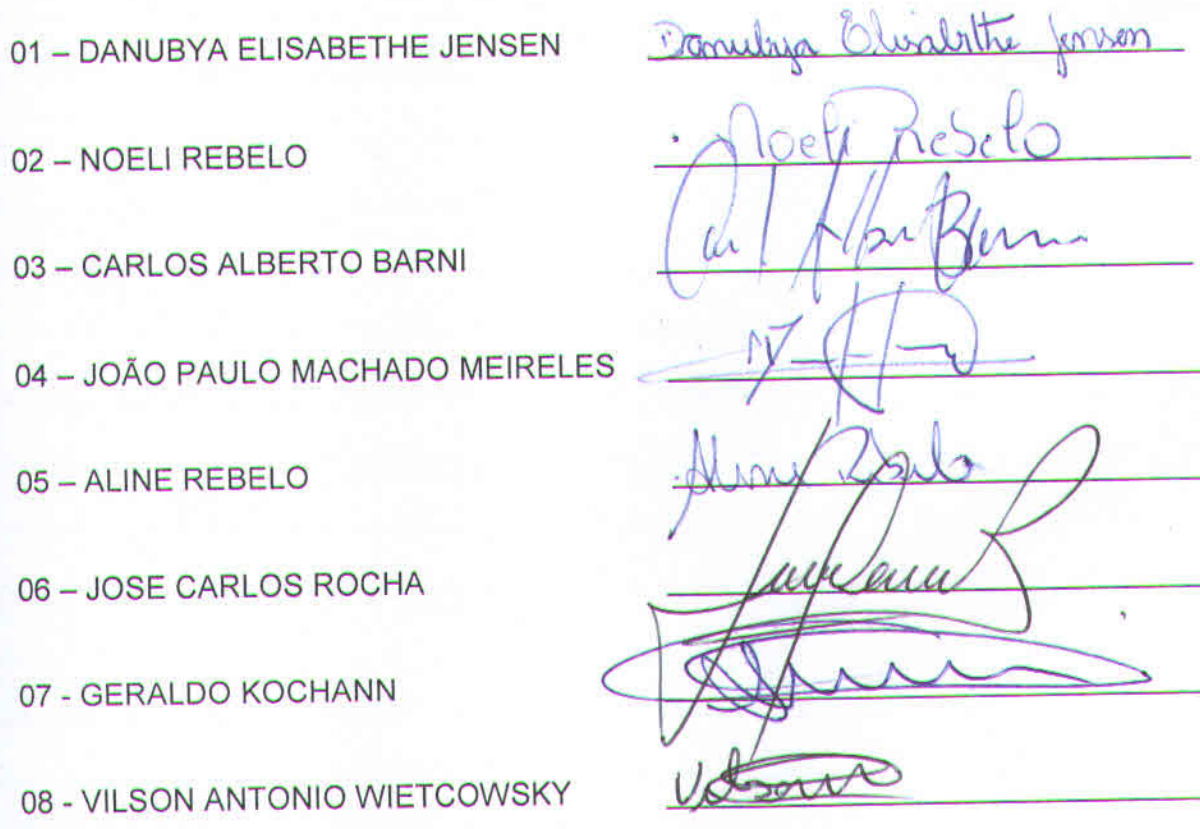 01 – DANUBYA ELISABETHE JENSEN Danubya Elisabethe Jensen
02 – NOELI REBELO Noeli Rebelo
03 – CARLOS ALBERTO BARNI
04 – JOÃO PAULO MACHADO MEIRELES
05 – ALINE REBELO Aline Rebelo
06 – JOSE CARLOS ROCHA
07 - GERALDO KOCHANN
08 - VILSON ANTONIO WIETCOWSKY